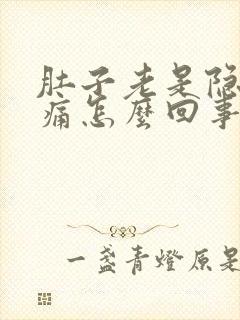 肚子老是隐
痛怎麼回事
一盏青燈原是